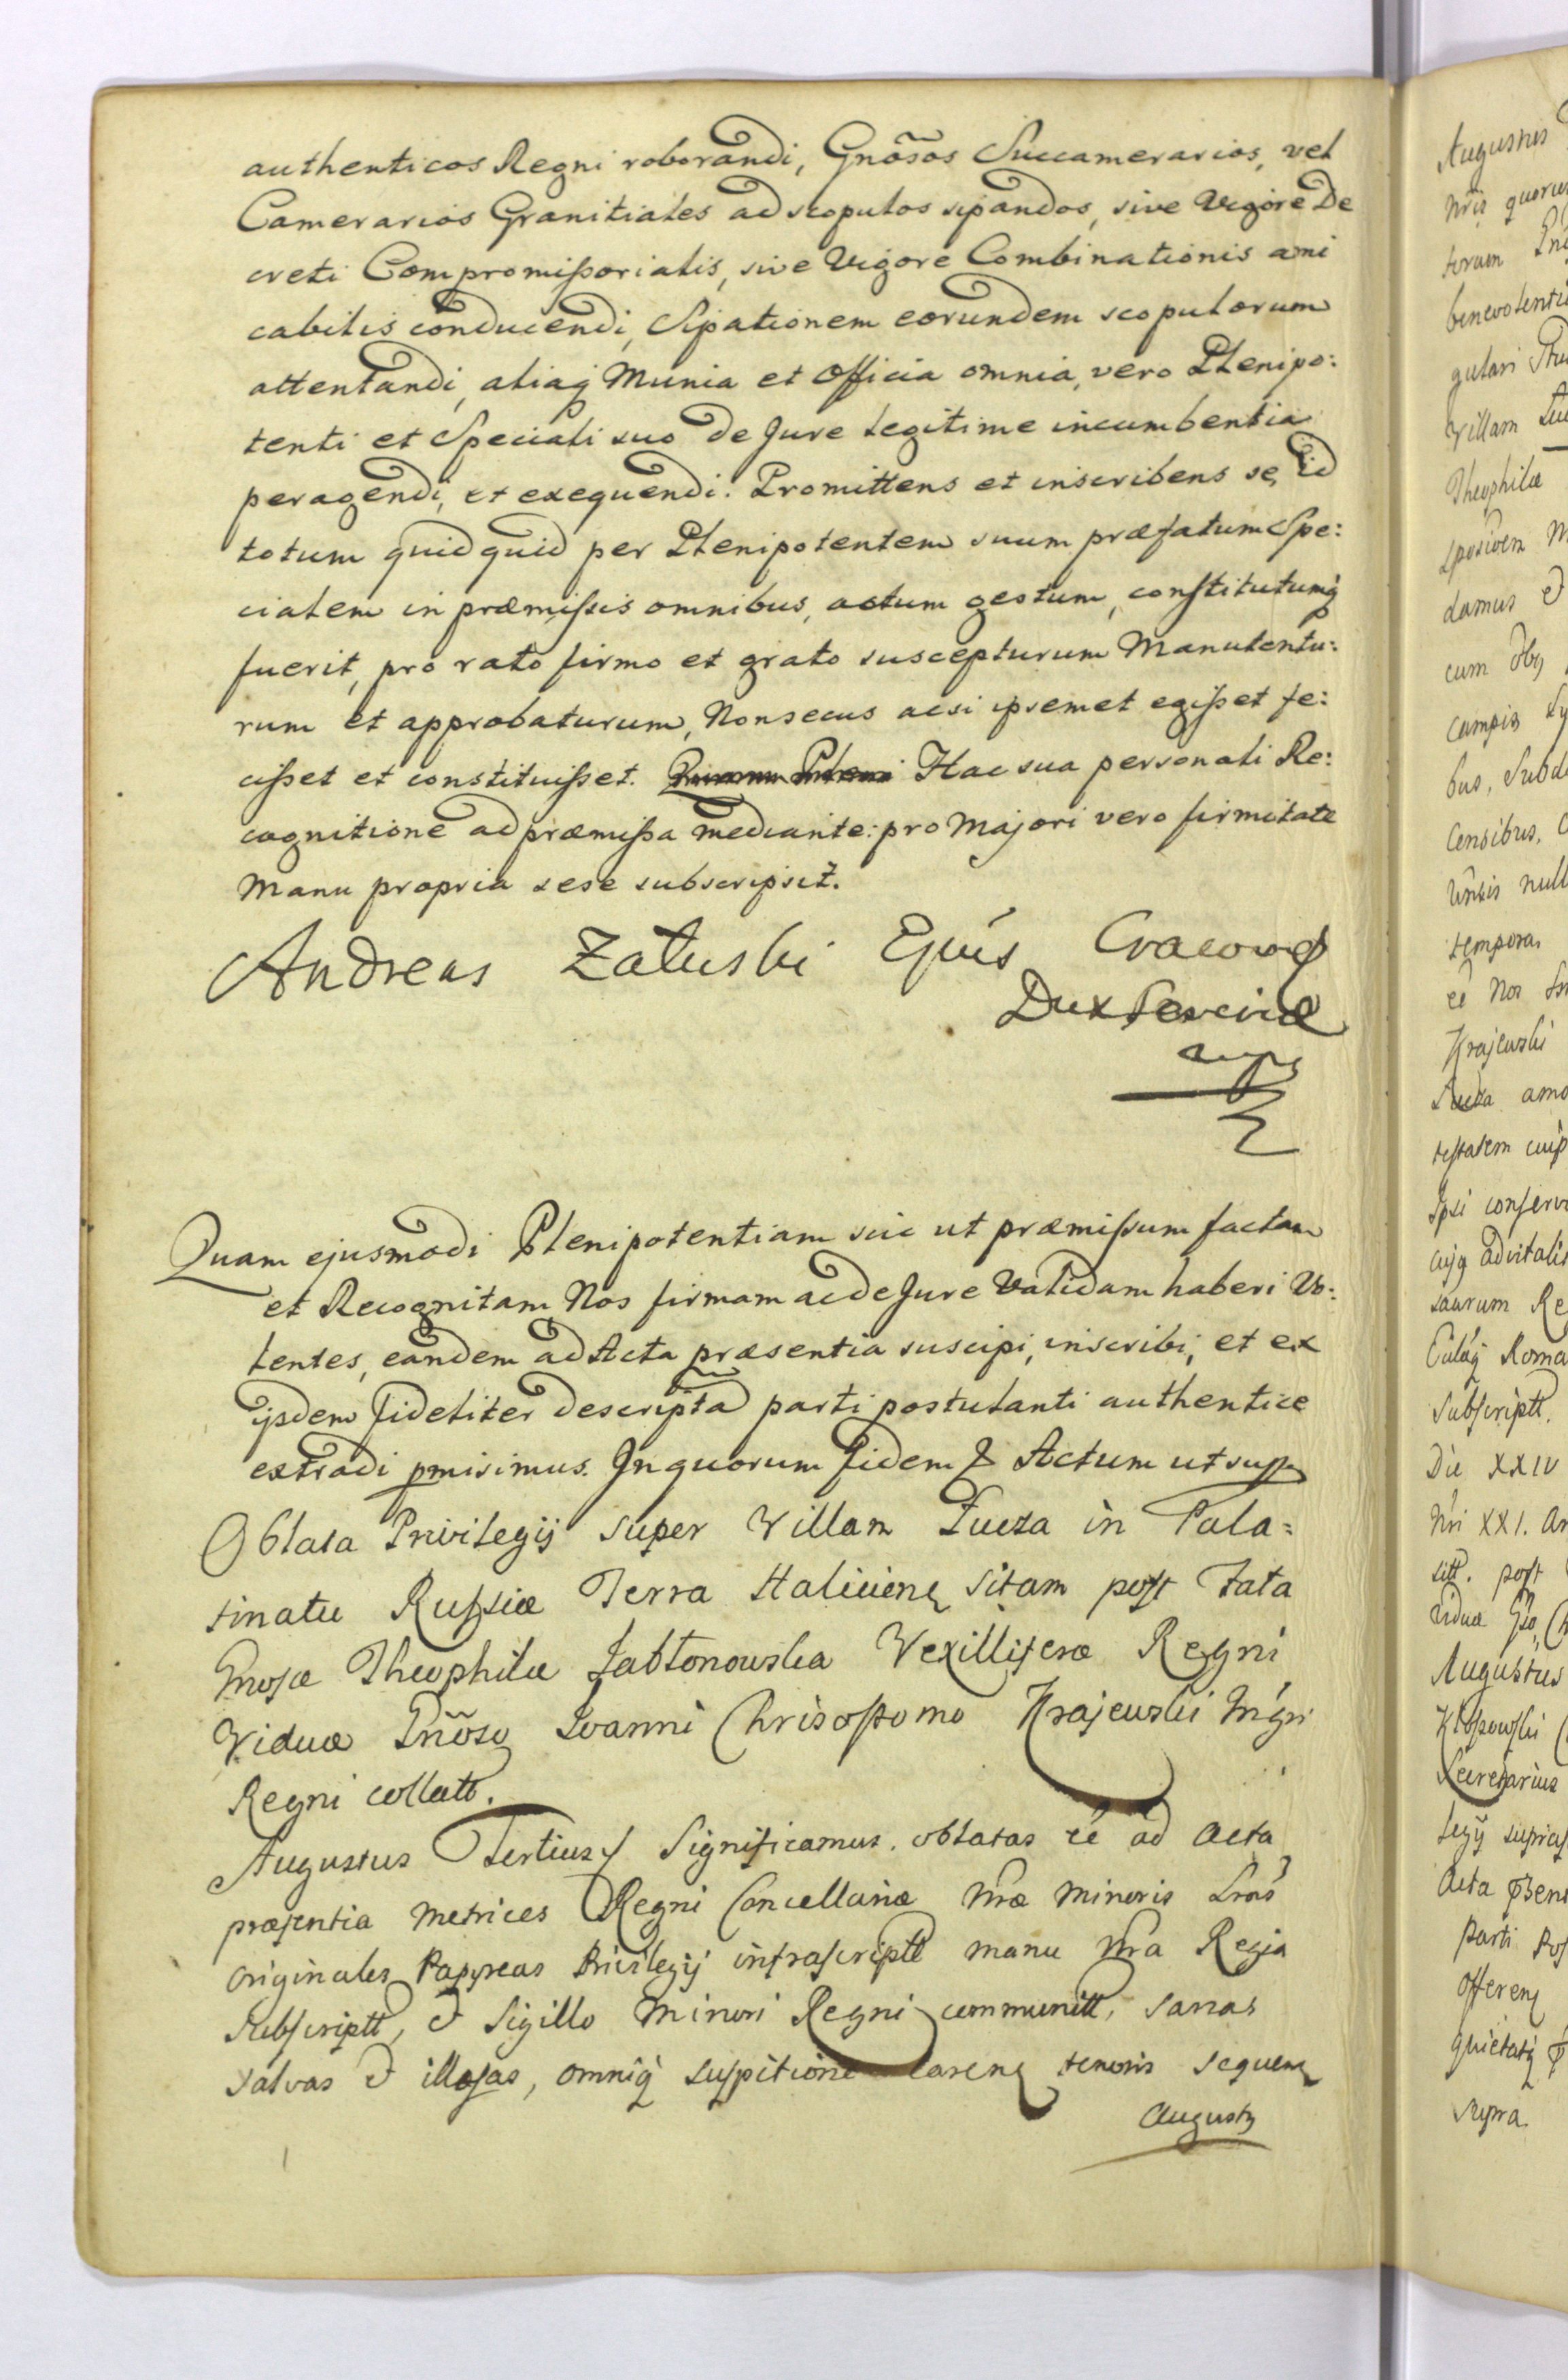 authenticos Regni roborandi, Gnõsos Succamerarios, vel
Camerarios Granitiales ad scopulos sipandos, sive Vigore De
creti Compromissorialis, sive Vigore Combinationis ami
cabilis conducendi, Sipationem eorundem scopulorum
attentandi, aliaq Munia et Officia omnia, vero Plenipo:
tenti et Speciali suo de Jure legitime incumbentia
peragendi, et exequendi. Promittens et inscribens se, id
totum quidquid per Plenipotentem suum præfatum Spe:
cialem in præmissis omnibus, actum gestum, constitutumq
fuerit, pro rato firmo et grato suscepturum Manutentu:
rum et approbaturum, Non secus acsi ipsemet egisset fe:
cisset et constituisset. Hac sua personali Re:
cognitione ad præmissa mediante: pro Majori vero firmitate
Manu propria sese subscripsit.
Andreas Załuski Epús Cracov
Dux Severiæ
mp
Quam ejusmodi Plenipotentiam sic ut præmissum factam
et Recognitam Nos firmam ac de Jure Validam haberi Vo:
lentes, eandem ad Acta præsentia suscipi, inscribi, et ex
ijsdem fideliter descripta parti postulanti authentice
extradi pmisimus. In quorum fidem & Actum ut supra
Oblata Privilegij super Villam Łucza in Pala=
tinatu Russiæ Terra Halicien sitam post Fata
Gnosæ Theophilæ Jabłonowska Vexilliferæ Regni
Viduæ Gnõso Joanni Chrisostomo Krajewski Mgri
Regni collatt.
Augustus Tertius & Significamus. oblatas eé ad Acta
præsentia Metrices Regni Cancellariæ Nræ Minoris Lras
originales Papyreas Privilegij infrascriptt manu Nra Regia
Subscriptt, & Sigillo Minori Regni communitt, sanas
salvas & illæsas, omniq suspitione caren tenoris sequen
Augusty
Augustus
Nris quorum
torum
benevolenti
gulari
Villam
Theophilæ
damus &
cum
campis
bus, Subd
Censibus,
null
tempora
eé Nos
Krajewski
amo
Ipsi conserv
advitalit
Re
Roma
Subscriptt.
Die XXIV
Nri XXI. An
post
Viduæ
Augustus
Secretarius
legij supras
Acta
Parti Pos
Offeren
quietatq
supra.